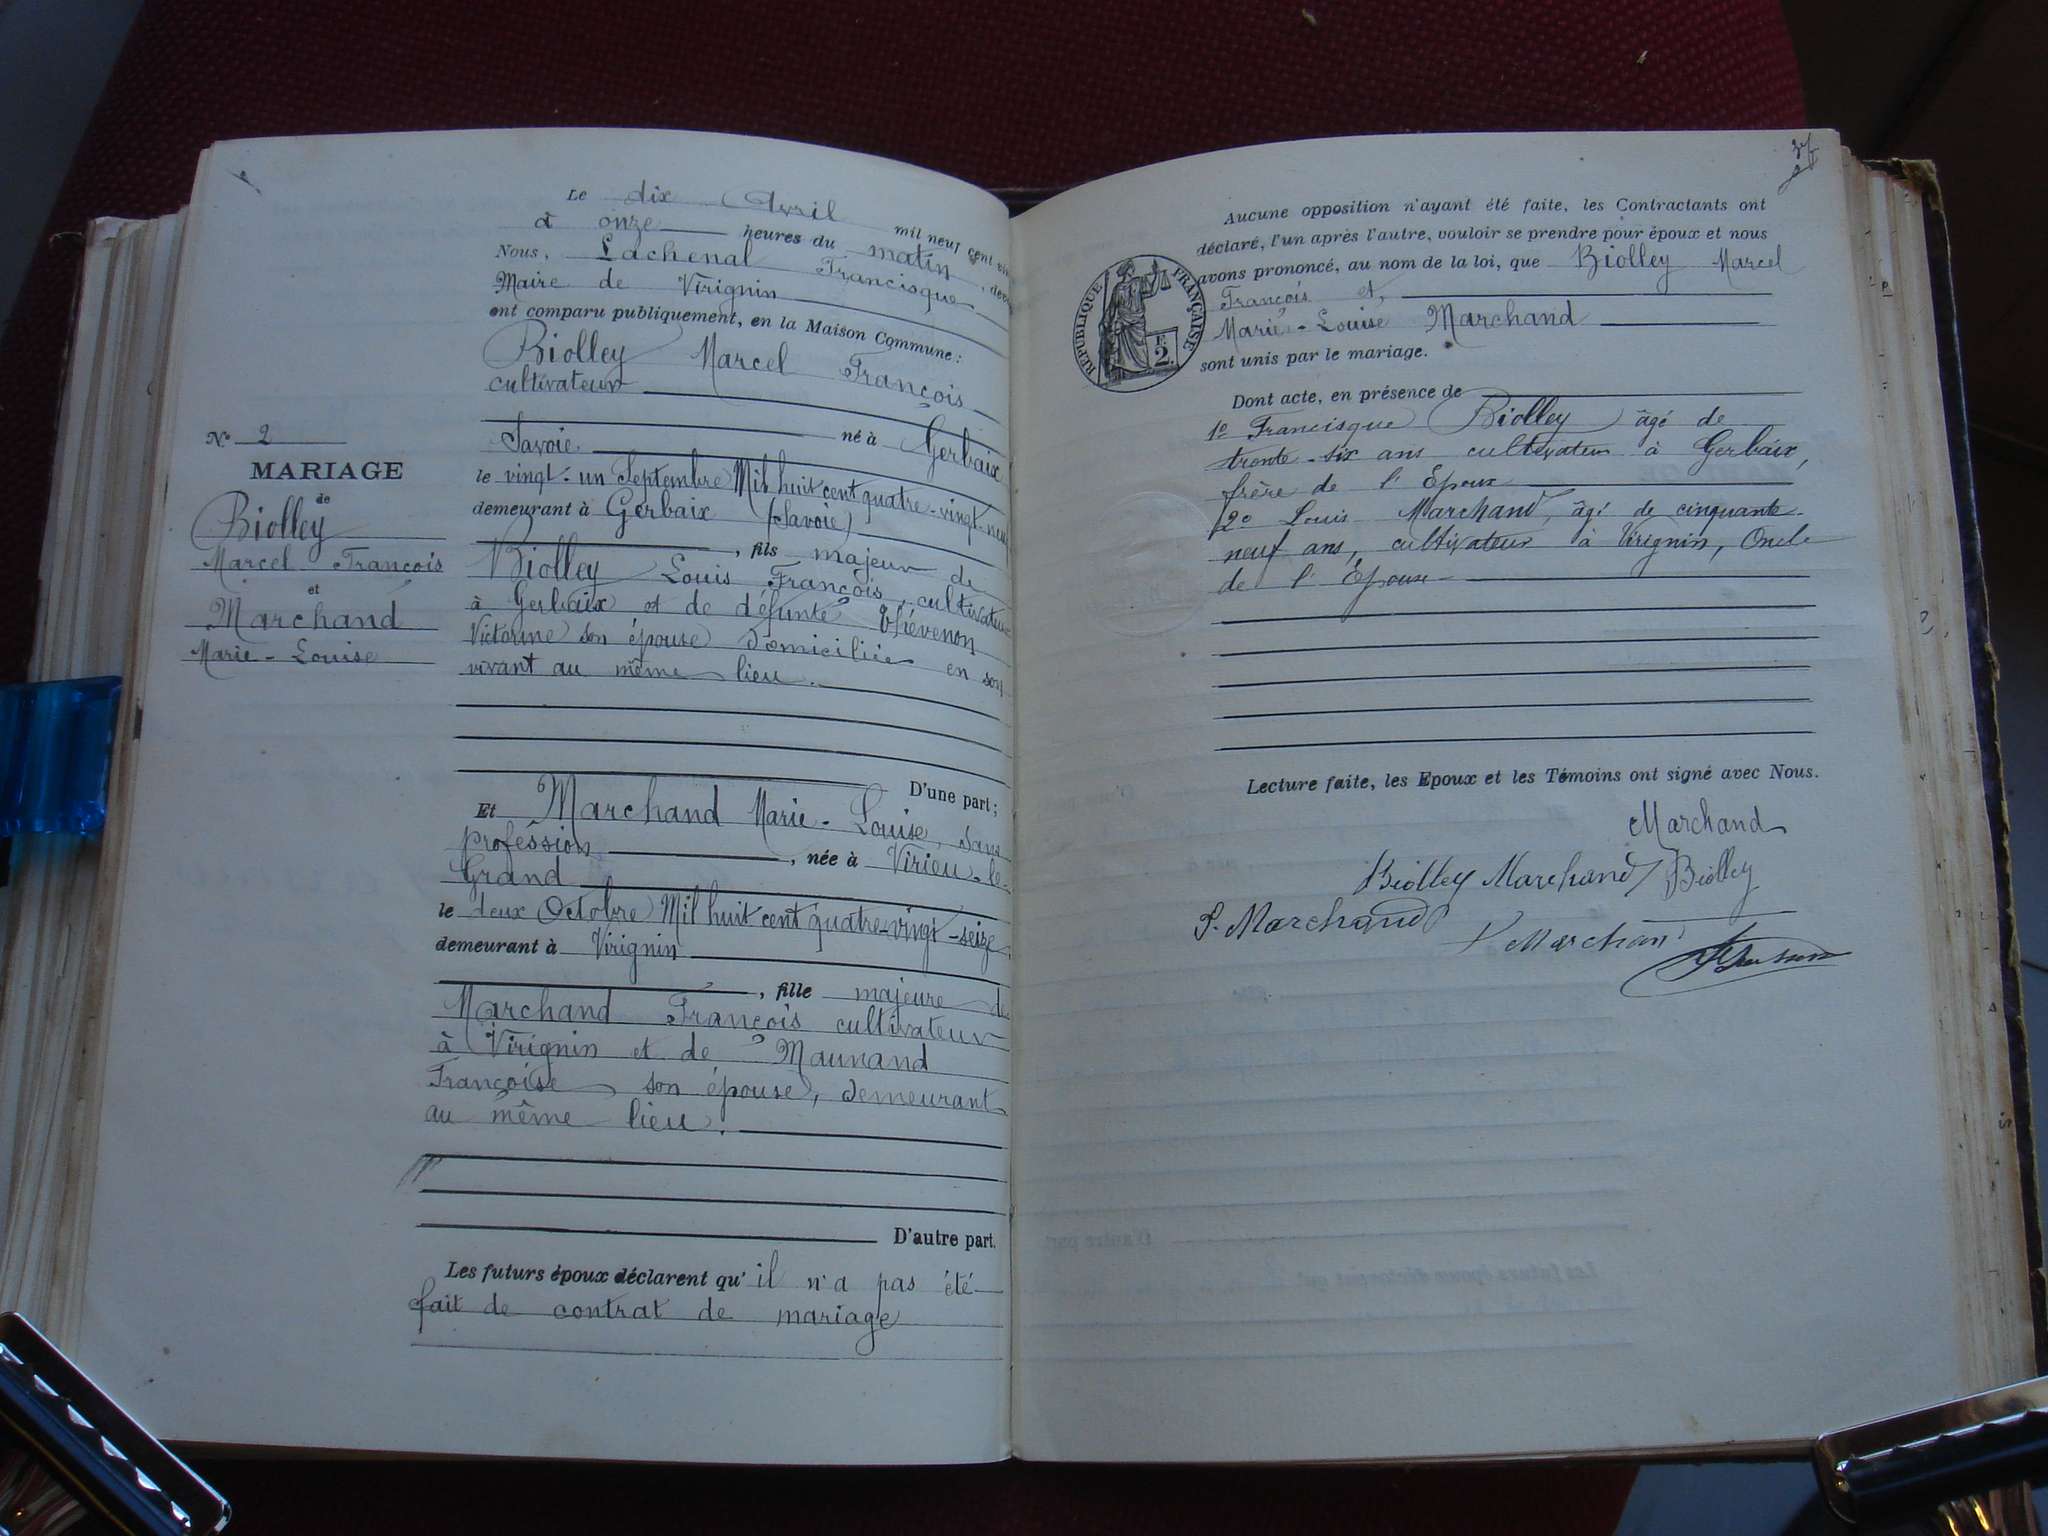 Le dix Avril mil neuf cent
à onze heures du matin,
Nous, Lachenal Francisque
Maire de Virignin
ont comparu publiquement, en la Maison Commune:
Biolley Marcel François
cultivateur
né à Gerbaix
Savoie
le vingt-un Septembre Mil huit cent quatre-vingt-neuf
demeurant à Gerbaix (Savoie)
, fils majeur de
Biolley Louis François, cultivateur
à Gerbaix et de défunte Thévenon
Victorine son épouse domiciliée en son
vivant au même lieu.
D'une part;
Nº 2
MARIAGE
de
Biolley
Marcel François
et
Marchand
Marie-Louise
Et Marchand Marie-Louise, sans
profession, née à Virieu-le-
Grand
le deux Octobre Mil huit cent quatre-vingt-seize
demeurant à Virignin
, fille majeure de
Marchand François cultivateur
à Virignin et de Maunand
Françoise son épouse, demeurant
au même lieu.
D'autre part.
Les futurs époux déclarent qu'il n'a pas été
fait de contrat de mariage
Aucune opposition n'ayant été faite, les Contractants ont
déclaré, l'un après l'autre, vouloir se prendre pour époux et nous
avons prononcé, au nom de la loi, que Biolley Marcel
François et,
Marie-Louise Marchand
sont unis par le mariage.
RÉPUBLIQUE FRANÇAISE
F.
2.
Dont acte, en présence de
1º Francisque Biolley âgé de
trente-six ans cultivateur à Gerbaix,
frère de l'Epoux
2º Louis Marchand, âgé de cinquante-
neuf ans, cultivateur à Virignin, Oncle
de l'Épouse
Lecture faite, les Epoux et les Témoins ont signé avec Nous.
Marchand
Biolley Marchand Biolley
Marchand
Marchand